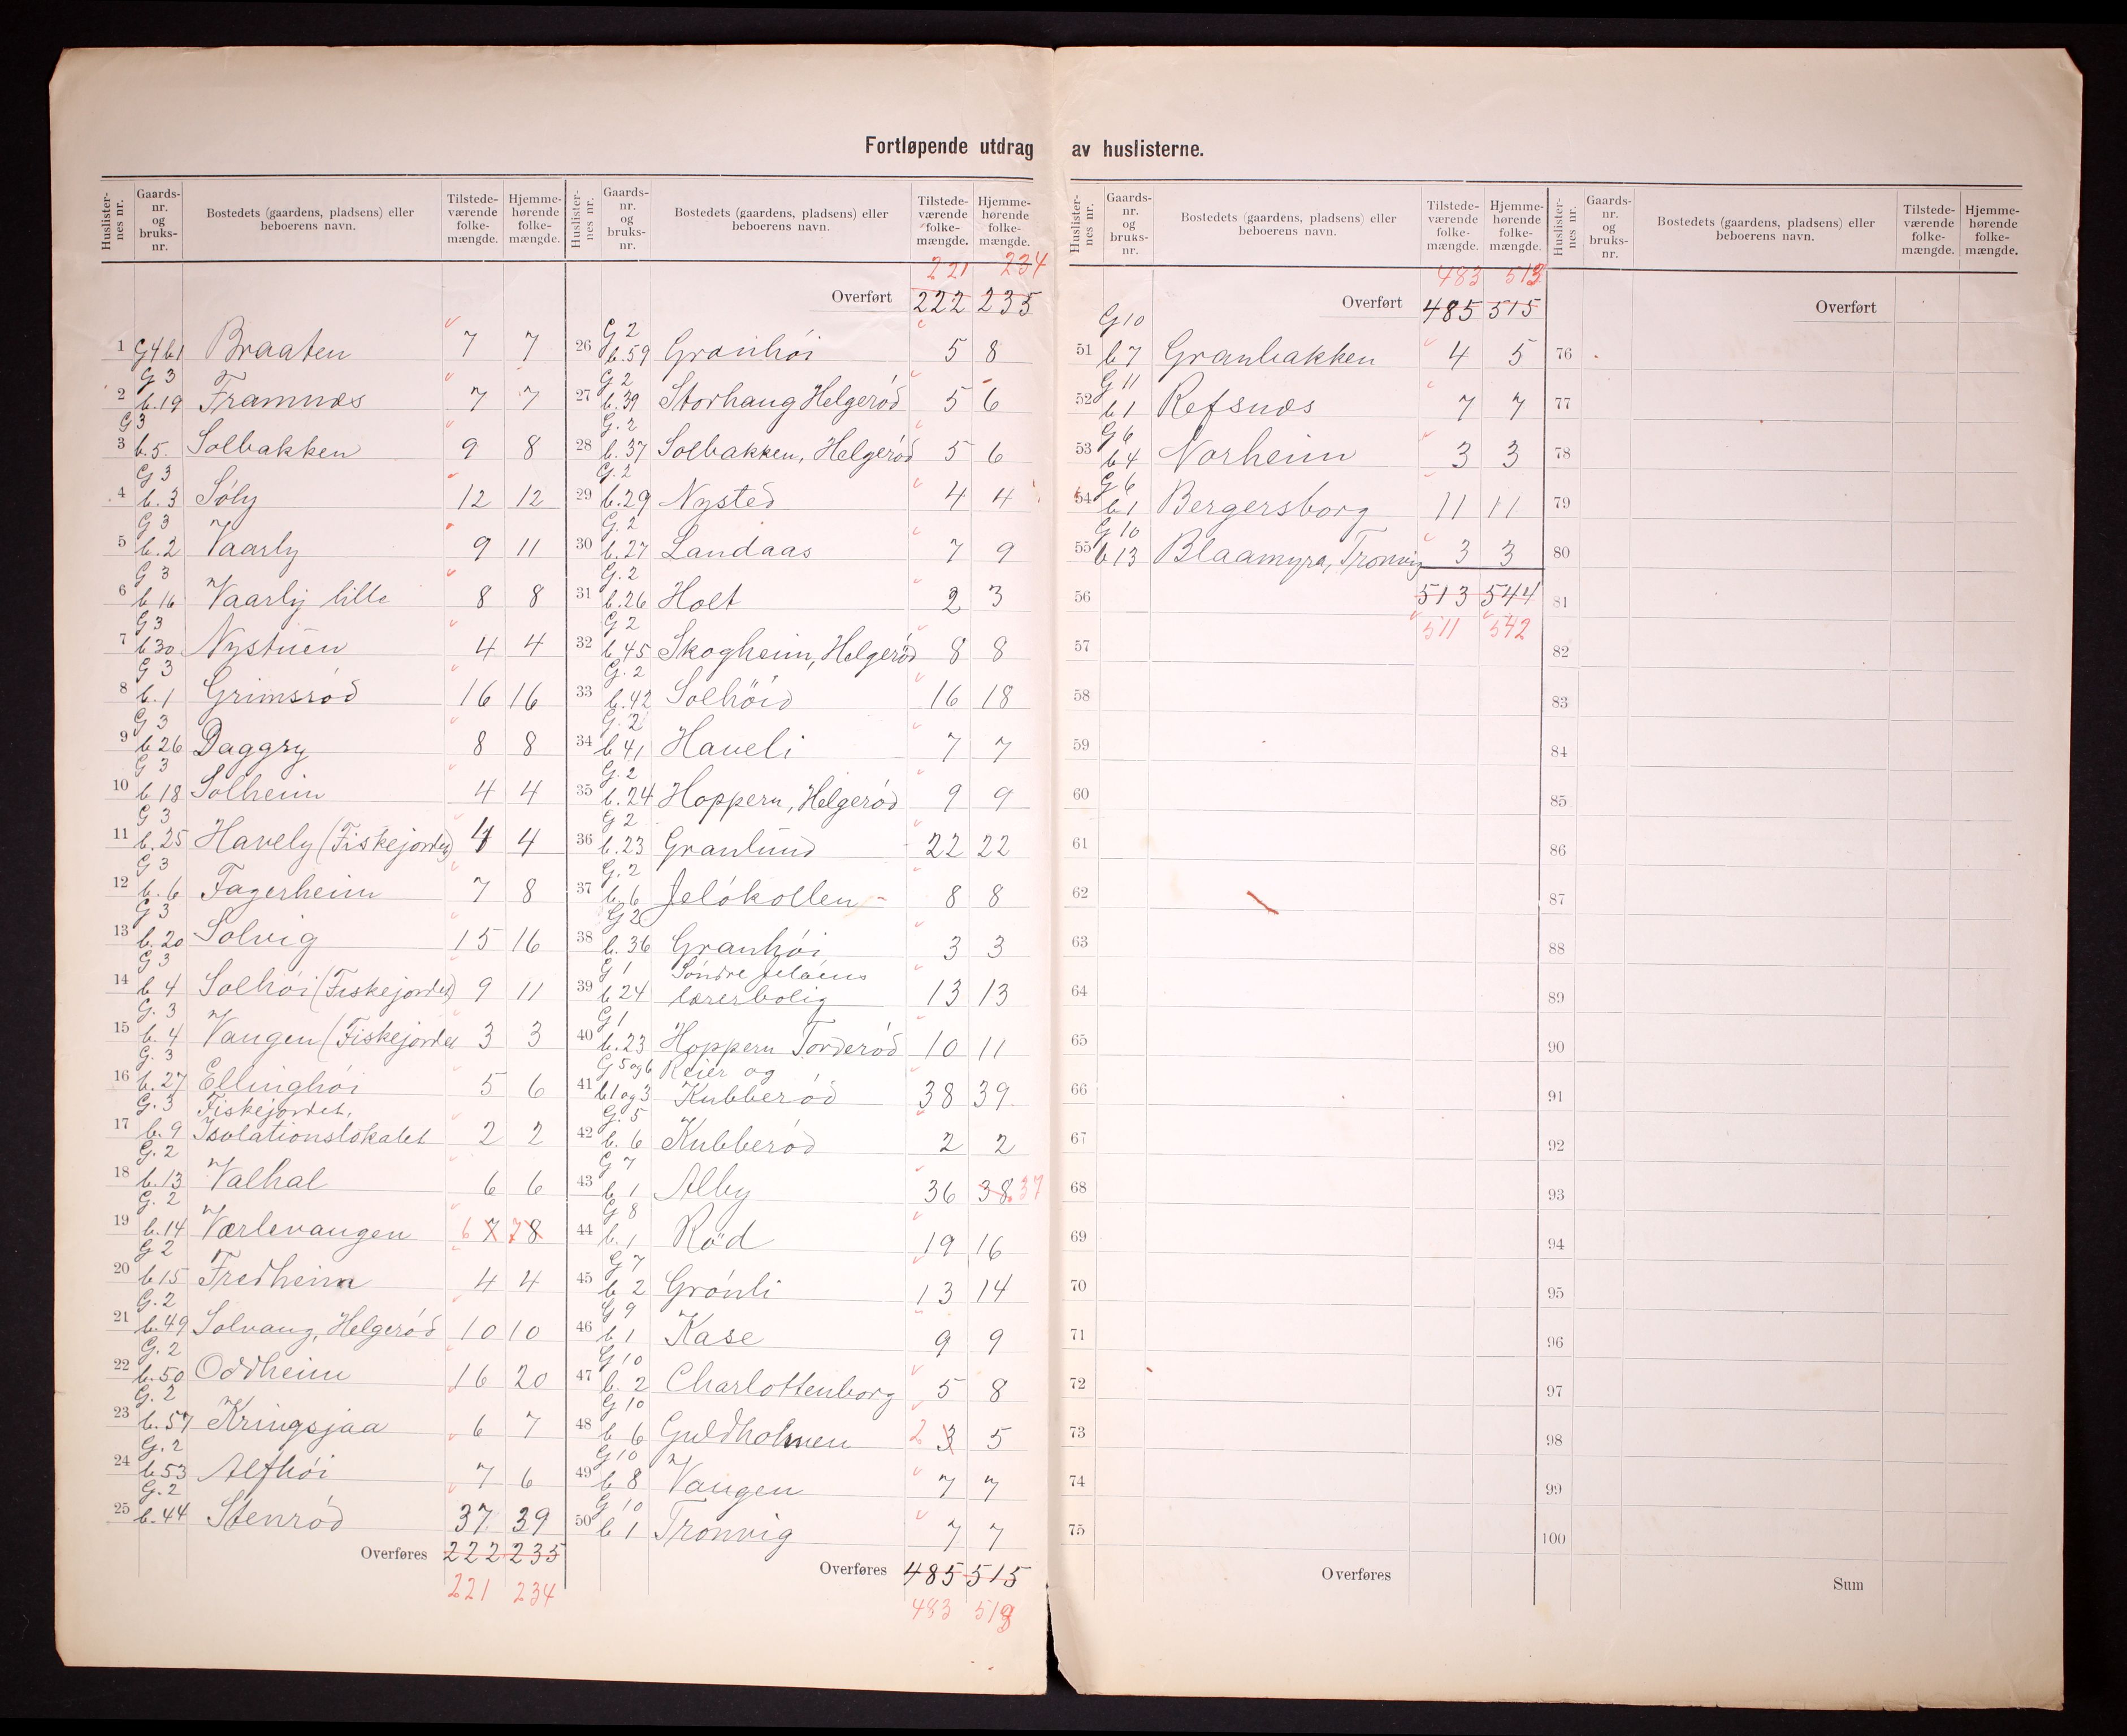 Fortløpende utdrag av huslisterne.
Huslister-nes nr. Gaards-nr. og bruks-nr. Bostedets (gaardens, pladsens) eller beboerens navn. Tilstede-værende folke-mængde. Hjemme-hørende folke-mængde.
1 G4 b1 Braaten 7 7
2 G 3 b.19 Framnæs 7 7
3 G3 b.5. Solbakken 9 8
4 G 3 b.3 Sóly 12 12
5 G 3 b.2 Vaarly 9 11
6 G 3 b 16 Vaarly lille 8 8
7 G 3 b30 Nystuen 4 4
8 G 3 b.1 Grimsród 16 16
9 G 3 b26 Daggry 8 8
10 G 3 b 18 Solheim 4 4
11 G 3 b.25 Havely (Fiskejordet) 4 4
12 G 3 b.6 Fagerheim 7 8
13 G 3 b.20 Solvig 15 16
14 G 3 b 4 Solhói (Fiskejordet) 9 11
15 G. 3 b.4 Vangen (Fiskejordet 3 3
16 G. 3 b.27 Ellinghói 5 6
17 G. 3 b.9 Fiskejordet, Isolationslokalet 2 2
18 G. 2 b.13 Valhal 6 6
19 G. 2 b.14 Værlevangen 6 7 7 8
20 G 2 b15 Fredheim 4 4
21 G. 2 b.49 Solvang, Helgeród 10 10
22 G. 2 b.50 Oddheim 16 20
23 G. 2 b.57 Kringsjaa 6 7
24 G. 2 b53 Alfhói 7 6
25 G. 2 b.44 Stenród 37 39
Overføres 222 235
221 234
Huslister-nes nr. Gaards-nr. og bruks-nr. Bostedets (gaardens, pladsens) eller beboerens navn. Tilstede-værende folke-mængde. Hjemme-hørende folke-mængde.
221 234
Overført 222 235
26 G 2 b.59 Granhói 5 8
27 G 2 b.39 Storhaug Helgeród 5 6
28 G. 2 b.37 Solbakken, Helgeród 5 6
29 G. 2 b.29 Nysted 4 4
30 G. 2 b.27 Landaas 7 9
31 G. 2 b.26 Holt 2 3
32 G 2 b.45 Skogheim, Helgeród 8 8
33 G. 2 b.42 Solhöid 16 18
34 G. 2 b 41 Haveli 7 7
35 G. 2 b.24 Hoppern, Helgeród 9 9
36 G 2 b.23 Granlund 22 22
37 G. 2 b.6 Jelókollen 8 8
38 G 2 b.36 Granhói 3 3
39 G 1 b 24 Söndre Jelóens lærerbolig 13 13
40 G 1 b.23 Hoppern Torderód 10 11
41 G 5 og 6 b1 og 3 Reier og Kubberód 38 39
42 G. 5 b. 6 Kubberód 2 2
43 G 7 b 1 Alby 36 38 37
44 G 8 b. 1 Röd 19 16
45 G 7 b 2 Grónli 13 14
46 G 9 b 1 Kase 9 9
47 G 10 b. 2 Charlottenborg 5 8
48 G 10 b 6 Guldholmen 2 3 5
49 G 10 b 8 Vangen 7 7
50 G 10 b 1 Tronvig 7 7
Overføres 485 515
483 513
Huslister-nes nr. Gaards-nr. og bruks-nr. Bostedets (gaardens, pladsens) eller beboerens navn. Tilstede-værende folke-mængde. Hjemme-hørende folke-mængde.
483 513
Overført 485 515
51 G 10 b 7 Granbakken 4 5
52 G 11 b 1 Refsnæs 7 7
53 G 6 b 4 Norheim 3 3
54 G 6 b 1 Bergersborg 11 11
55 G 10 b 13 Blaamyra, Tronvig 3 3
56 513 544
511 542
57
58
59
60
61
62
63
64
65
66
67
68
69
70
71
72
73
74
75
Overføres
Huslister-nes nr. Gaards-nr. og bruks-nr. Bostedets (gaardens, pladsens) eller beboerens navn. Tilstede-værende folke-mængde. Hjemme-hørende folke-mængde.
Overført
76
77
78
79
80
81
82
83
84
85
86
87
88
89
90
91
92
93
94
95
96
97
98
99
100
Sum